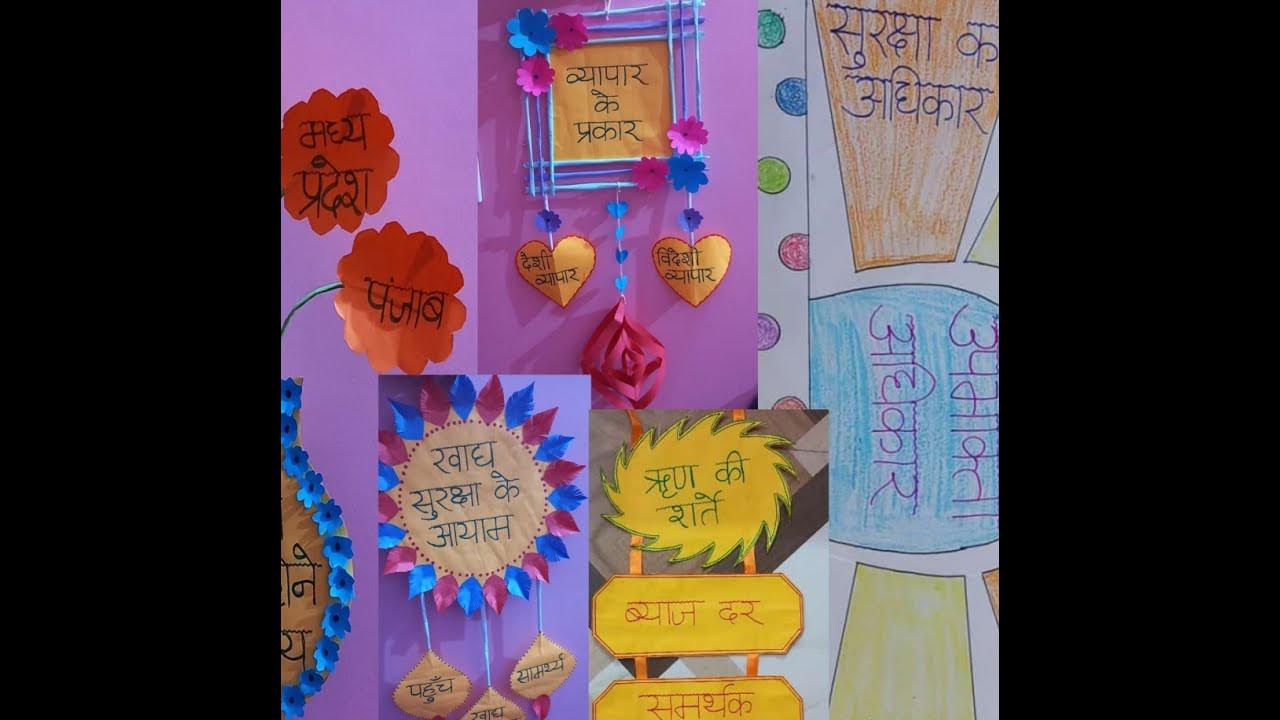 मध्य
प्रदेश
पंजाब
व्यापार
के
प्रकार
देशी
व्यापार
विदेशी
व्यापार
सुरक्षा का
अधिकार
उपभोक्ता
अधिकार
खाद्य
सुरक्षा के
आयाम
पहुँच
खाद्य
सामर्थ्य
ऋण की
शर्ते
ब्याज दर
समर्थक